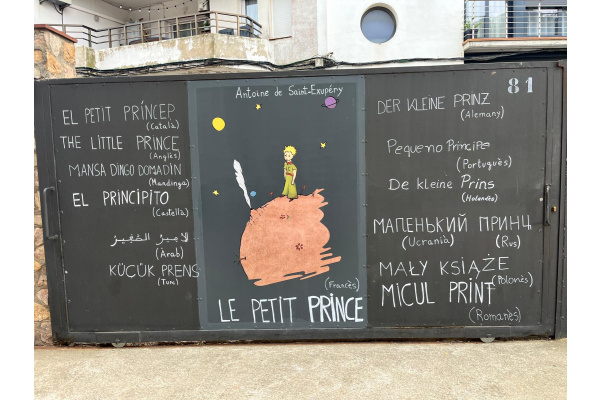 EL PETIT PRÍNCEP
(Català)
THE LITTLE PRINCE
(Anglès)
MANSA DINGO DOMADIN
(Mandinga)
EL PRINCIPITO
(Castellà)
الامير الصغير
(Àrab)
KÜÇÜK PRENS
(Turc)
Antoine de Saint-Exupéry
(Francès)
LE PETIT PRINCE
81
DER KLEINE PRINZ
(Alemany)
Pequeno Príncipe
(Portuguès)
De kleine Prins
(Holandès)
МАПЕНЬКИЙ ПРИНЦ
(Ucranià) (Rus)
MAŁY KSIĄŻE
(Polonès)
MICUL PRINT
(Romanès)